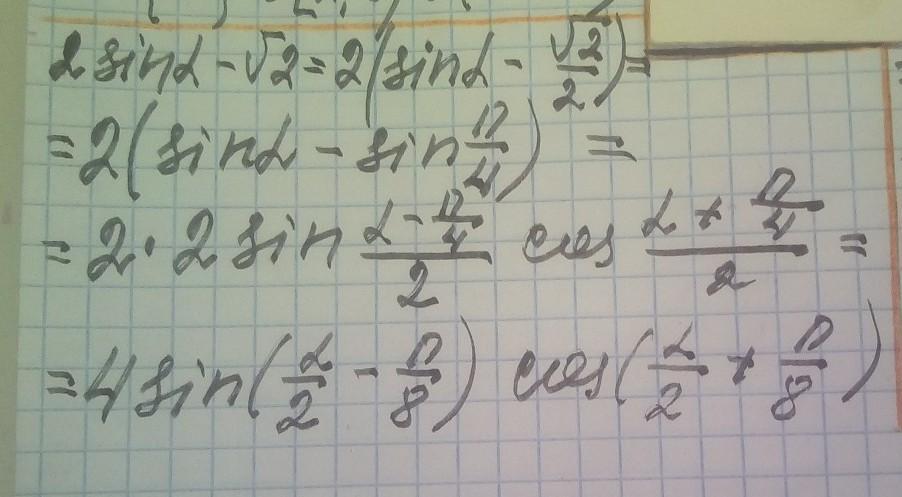 2 sin α - √2 = 2(sin α - √2/2) =
= 2(sin α - sin π/4) =
= 2 · 2 sin (α - π/4)/2 cos (α + π/4)/2 =
= 4 sin(α/2 - π/8) cos(α/2 + π/8)